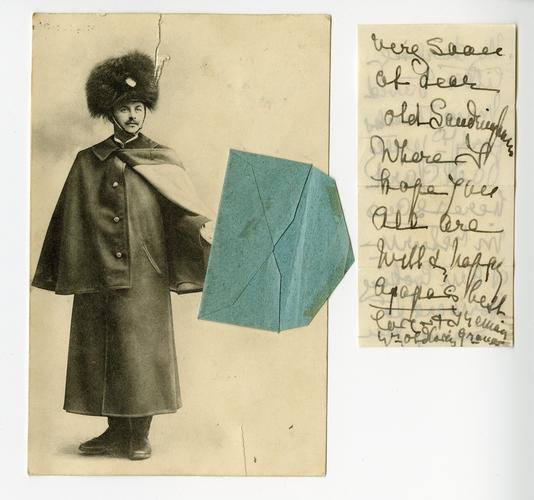 very soon
at dear
old Sandringham
Where I
hope you
All are
Well & happy
Apapa's best
love